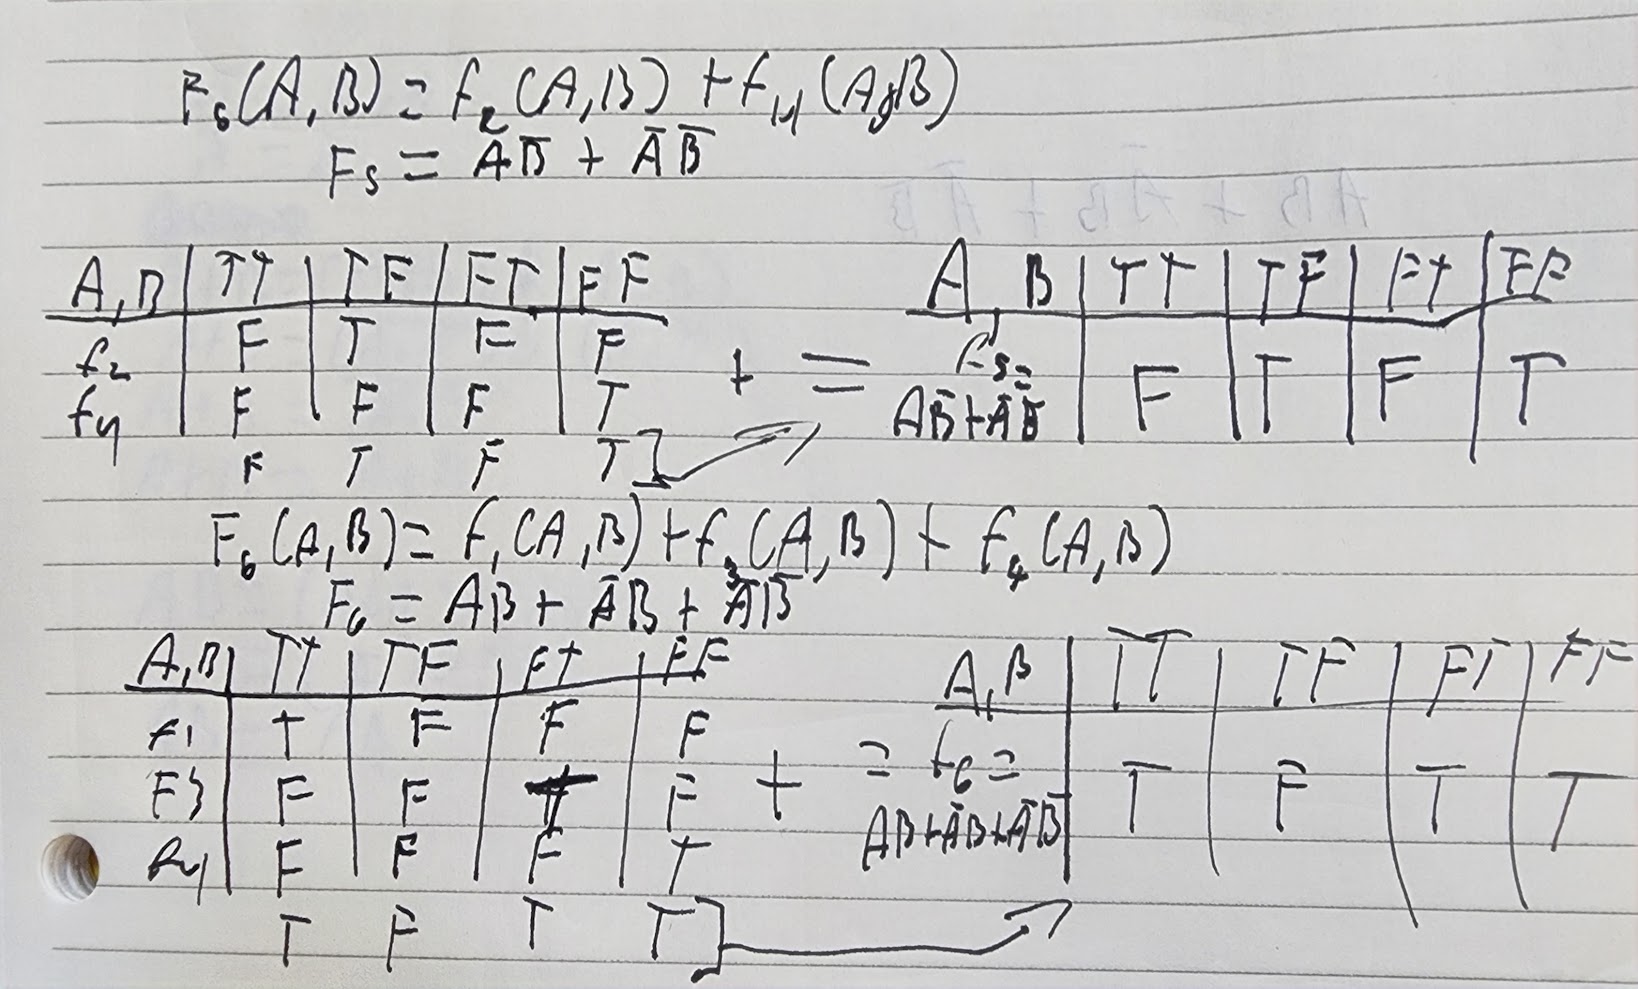 F₅(A,B) = f₂(A,B) + f₄(A,B)
F₅ = AB̅ + A̅ B̅
A,B | TT | TF | FT | FF
f₂ | F | T | F | F
f₄ | F | F | F | T
F T F T
+ =
A, B | TT | TF | FT | FF
f₅ = AB̅+A̅B̅ | F | T | F | T
F₆(A,B) = f₁(A,B) + f₃(A,B) + f₄(A,B)
F₆ = AB + A̅B + A̅B̅
A,B | TT | TF | FT | FF
f1 | T | F | F | F
F3 | F | F | T | F
f4 | F | F | F | T
T F T T
+
A,B | TT | TF | FT | FF
= f₆ = AB+A̅B+A̅B̅ | T | F | T | T